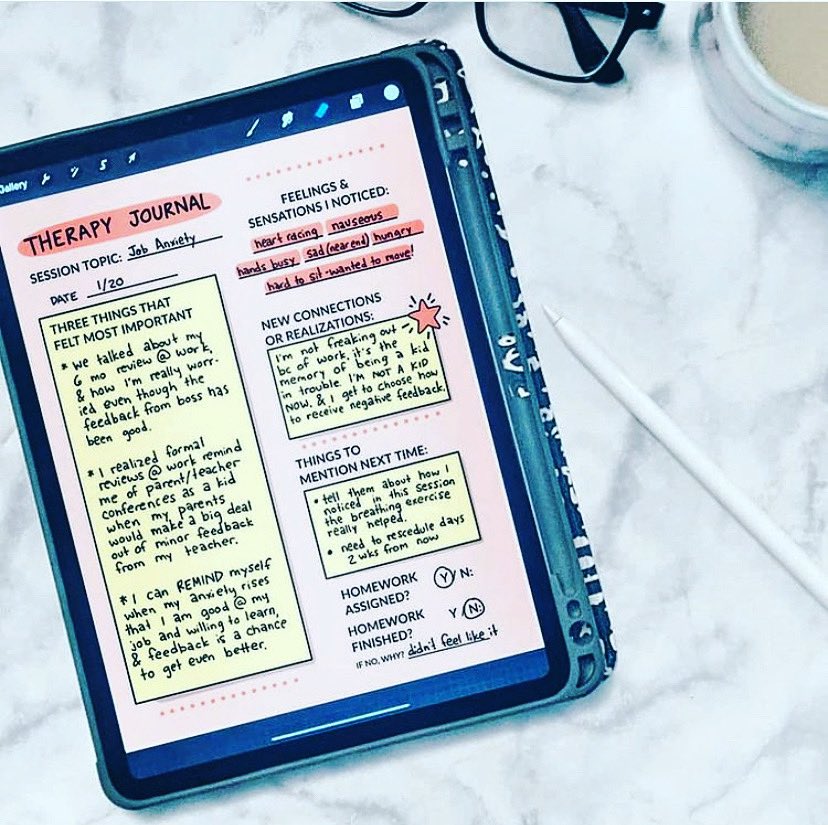 Gallery
S
THERAPY JOURNAL
SESSION TOPIC: Job Anxiety
DATE 1/20
THREE THINGS THAT
FELT MOST IMPORTANT
* We talked about my
6 mo review @ work,
& how I'm really worr-
ied even though the
feedback from boss has
been good.
* I realized formal
reviews @ work remind
me of parent/teacher
conferences as a kid
when my parents
would make a big deal
out of minor feedback
from my teacher.
* I can REMIND myself
when my anxiety rises
that I am good @ my
job and willing to learn,
& feedback is a chance
to get even better.
FEELINGS &
SENSATIONS I NOTICED:
heart racing nauseous
hands busy sad (near end) hungry
hard to sit - wanted to move!
NEW CONNECTIONS
OR REALIZATIONS:
I'm not freaking out
bc of work, it's the
memory of being a kid
in trouble. I'M NOT A KID
NOW. & I get to choose how
to receive negative feedback.
THINGS TO
MENTION NEXT TIME:
• tell them about how I
noticed in this session
the breathing exercise
really helped.
• need to rescedule days
2 wks from now
HOMEWORK
ASSIGNED? Y/N:
HOMEWORK
FINISHED? Y/N:
IF NO, WHY? didn't feel like it